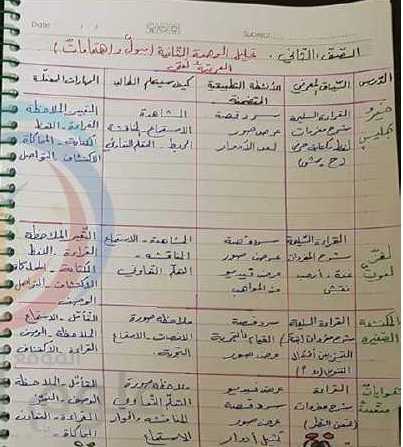 Date
Subject
الصف الثاني . تحليل الوحدة الثانية (ميول واهتمامات)
العربية لغتي
الدرس
السياق المعرفي
الأنشطة التطبيقية المتضمنة
كيف سيتعلم الطالب
المهارات المعدلة
القراءة السليمة
شرح مفردات
سرد قصة
عرض صور
لعب الأدوار
المشاهدة
الاستماع المناقشة
التعلم التعاوني
التعبير الملاحظة
القراءة - اللفظ
الكتابة - المحاكاة
الاكتشاف - التواصل
القراءة السليمة
شرح المفردات
سرد قصة
عرض صور
عرض فيديو
عن المواهب
المشاهدة - الاستماع
المناقشة -
التعلم التعاوني
التعبير الملاحظة
القراءة - اللفظ
الكتابة - المحاكاة
الاكتشاف - التواصل
الوصف
المكتشفة
الصغيرة
القراءة السليمة
شرح مفردات
سرد قصة
القيام بالتجربة
عرض صور
ملاحظة صورة
الإنصات - الاستماع
التجربة
التأمل - الاستماع
الملاحظة - الوصف
القراءة - الاكتشاف
هوايات
القراءة
شرح مفردات
عرض فيديو
سرد قصة
عرض صور
تمثيل أدوار
ملاحظة صورة
التعلم التعاوني
المناقشة - الحوار
الاستماع
التأمل - الملاحظة
الوصف - التعبير
القراءة - التعاون
المحاكاة